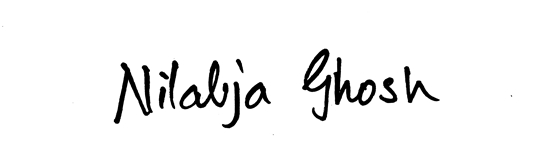 Nilabja Ghosh